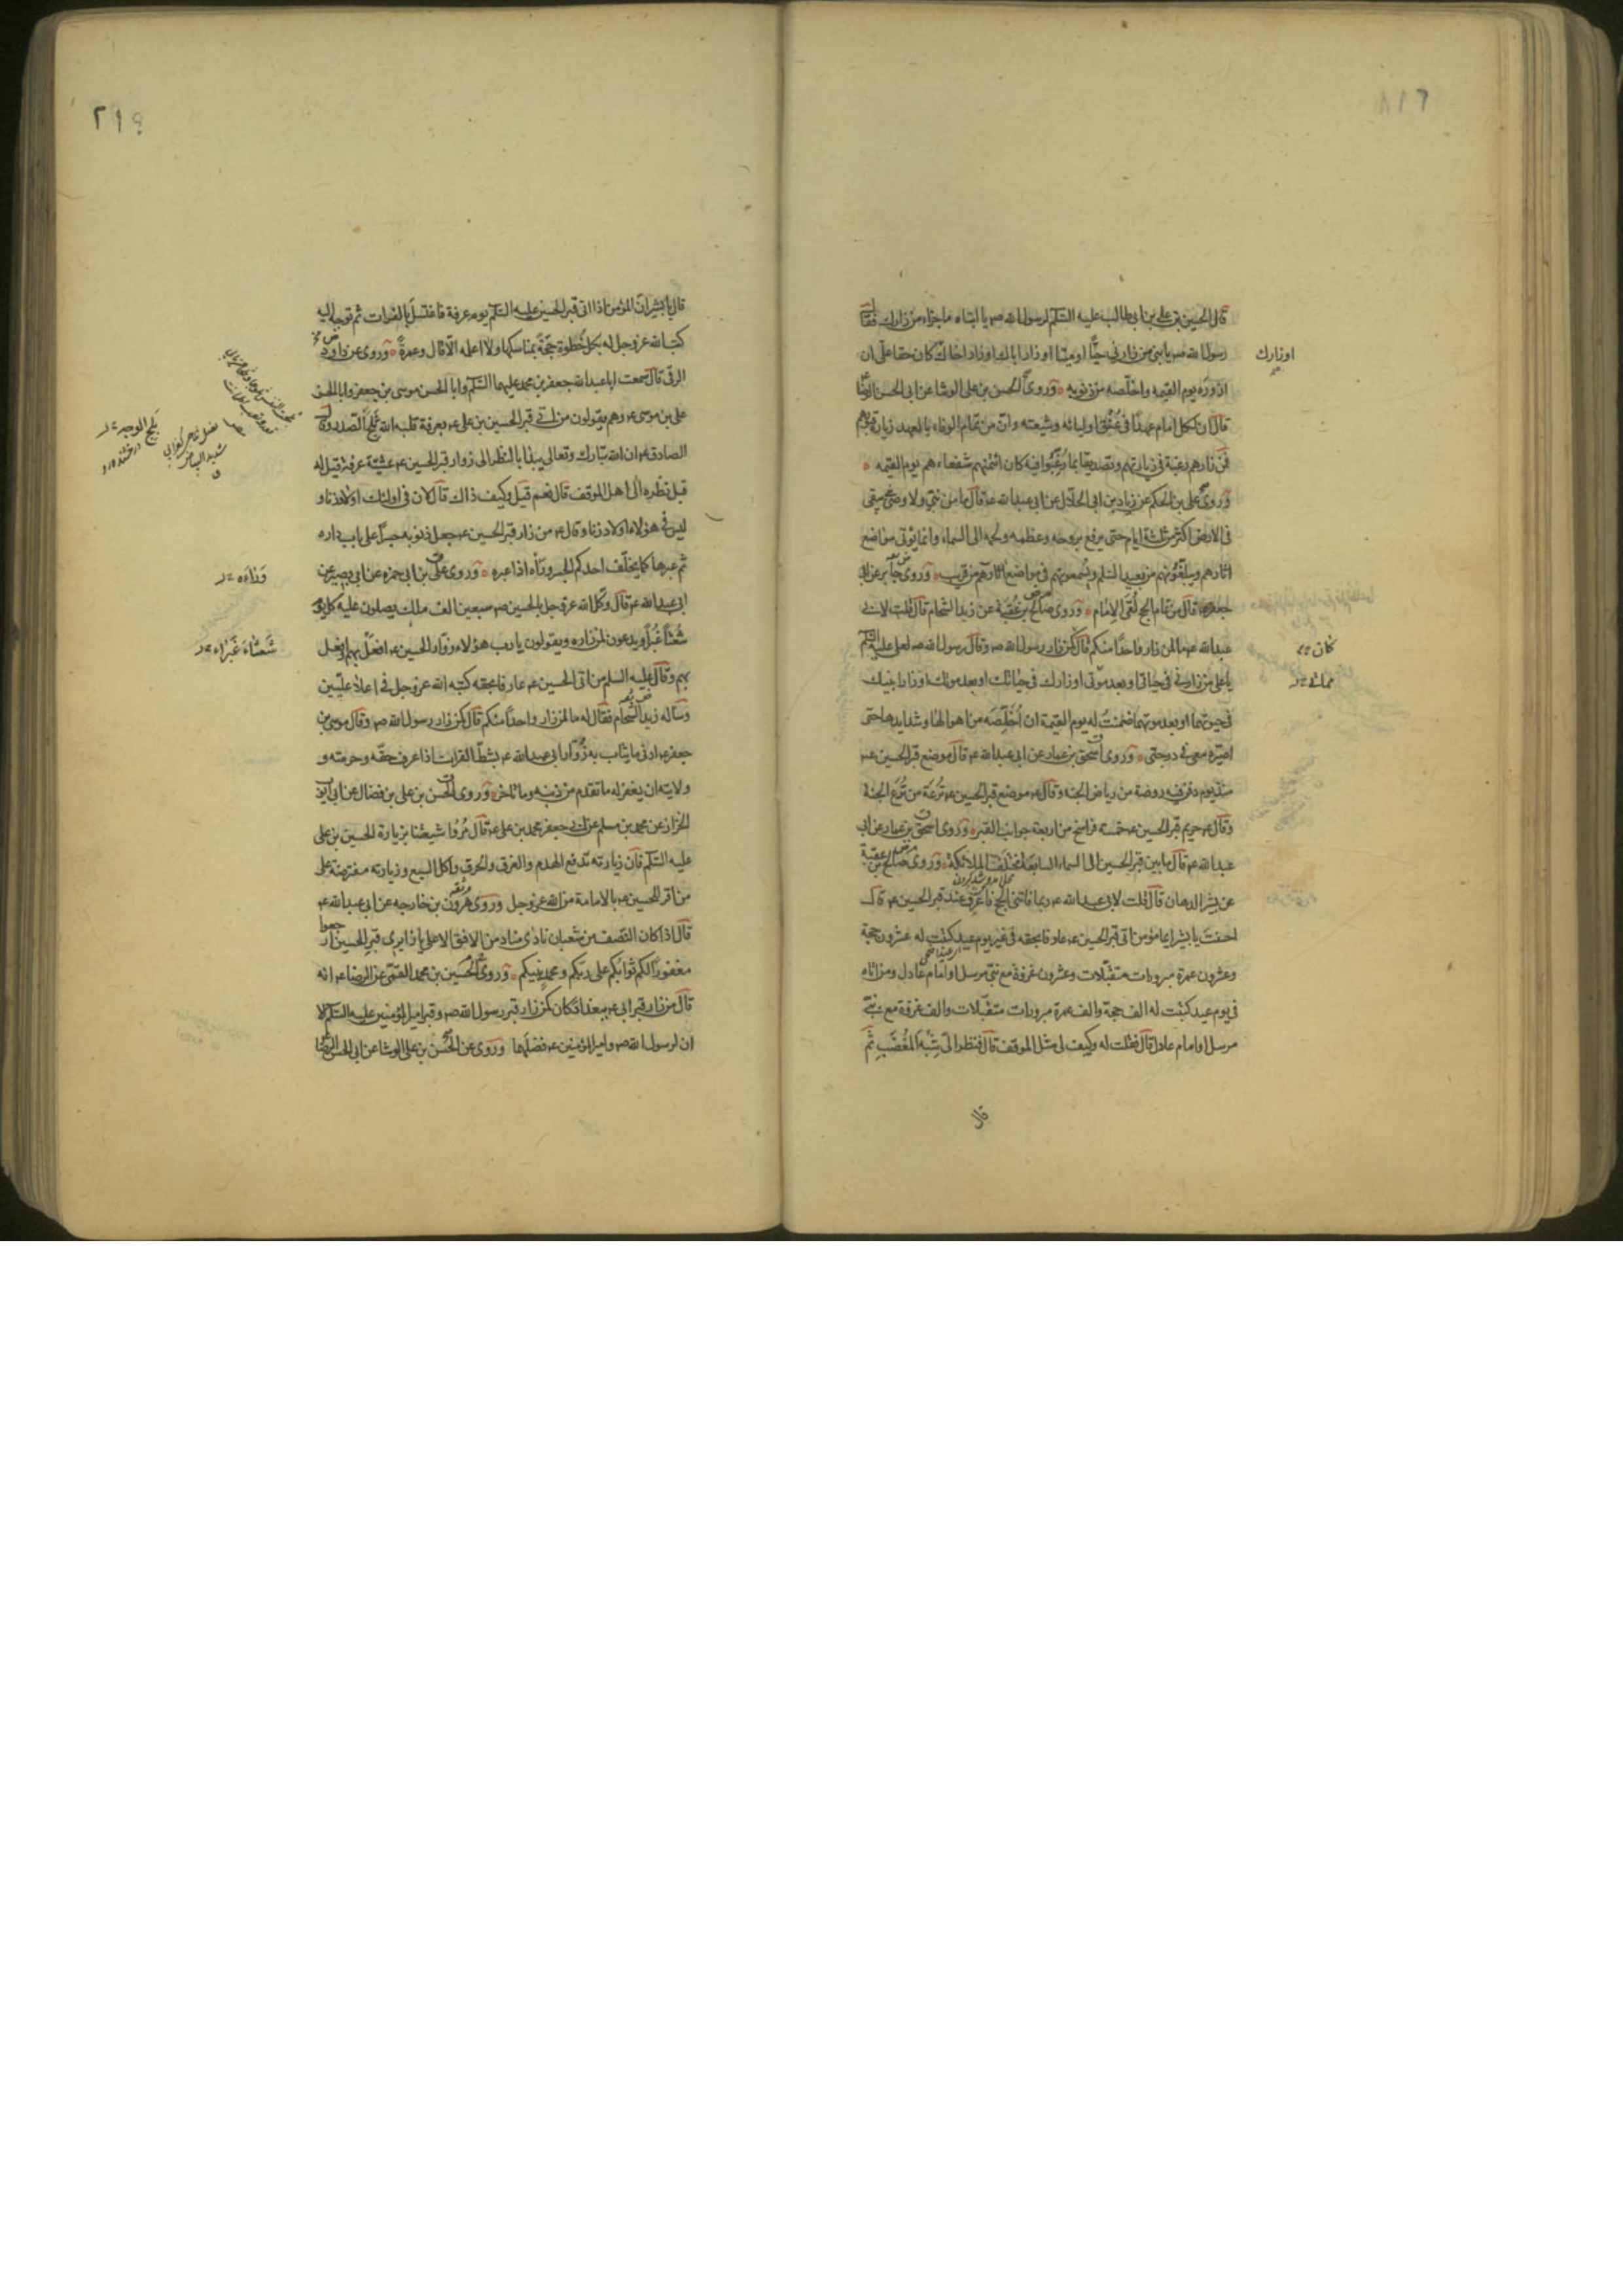 قال الحسين بن علي بن ابي طالب عليه السّلم لرسول الله صم يا ابتاه ما جزاء من زارك فقال
رسول الله صم يا بني من زارني حيًّا او ميتا او زار اباك او زار اخاك كان حقا علىّ ان
اوزارك
ازوره يوم القيمة واخلّصه من ذنوبه وروى الحسن بن على الوشا عن ابى الحسن الرضا
قال ان لكل امام عهدًا فى عُنُق اوليائه وشيعته وانّ من تمام الوفاء بالعهد زيارة قبورهم
فمن زارهم رغبة فى زيارتهم وتصديقا بما رغّبوا فيه كان ائمتهم شفعاءهم يوم القيمه
وروى على بن الحكم عن زياد بن ابى الحلال عن ابى عبدالله ع قال ما من نبيّ ولا وصىّ يبقى
فى الارض اكثر من ثلثة ايام حتى يرفع بروحه وعظمه ولحمه الى السماء وانما يؤتى مواضع
اثارهم ويبلّغونهم من بعيد السّلم ويُسمعونهم فى مواضع اثارهم من قريب وروى جابر عن ابى
جعفر ع قال من تمام الحج لقى الامام وروى صالح بن عُقبَة عن زيد الشحام قال قلت لابى
عبدالله ع ما لمن زار واحدًا منكم قال كمن زار رسول الله صم وقال رسول الله صم لعلى عليه السّلم
كان
يا على من زارنى فى حياتى او بعد موتى او زارك فى حياتك او بعد موتك او زار ابنيك
مماتى
فى حيوتهما او بعد موتهما ضمنتُ له يوم القيمة ان اُخلّصه من اهوالها وشدايدها حتى
اصيّره معى فى درجتى وروى اسحق بن عمار عن ابى عبدالله ع قال موضع قبر الحسين ع
منذ يوم دفن فيه روضة من رياض الجنة وقال ع موضع قبر الحسين ع تُرعَة من تُرَع الجنة
وقال ع حريم قبر الحسين ع خمسة فراسخ من اربعة جوانب القبر وروى اسحق بن عمار عن ابى
عبدالله ع قال ما بين قبر الحسين الى السماء السابعة مختلف الملائكة وروى صالح بن عقبة
عن بشير الدهان قال قلت لابى عبدالله ع ربما فاتنى الحج فاعرّف عند قبر الحسين ع قال
احسنتَ يا بشير ايما مؤمن اتى قبر الحسين ع عارفا بحقه فى غير يوم عيد كتبت له عشرون حجة
وعشرون عمرة مبرورات متقبّلات وعشرون غزوة مع نبىّ مرسل او امام عادل ومن اتاه
فى يوم عيد كتبت له الف حجة والف عمرة مبرورات متقبّلات والف غزوة مع نبىّ
مرسل او امام عادل قال فقلت له وكيف لى مثل الموقف قال فنظر الىّ شِبْه المغضَب ثم
قال
٢١٩
قال يا بشير انّ المؤمن اذا اتى قبر الحسين عليه السّلم يوم عرفة فاغتسل بالفرات ثم توجه اليه
كتب الله عز وجل له بكل خُطوة حجّةً بمناسكها ولا اعلمه الّا قال وعمرةً وروى عن داود
الرقى قال سمعت ابا عبدالله جعفر بن محمد عليهما السّلم وابا الحسن موسى بن جعفر وابا الحسن
على بن موسى ع وهم يقولون من اتى قبر الحسين بن على ع بعرفة قلبه الله ثَلِجَ الصدر وقال
الصادق ع ان الله تبارك وتعالى يبدأ بالنظر الى زوار قبر الحسين ع عشيّة عرفة قيل له
قبل نظره الى اهل الموقف قال نعم قيل وكيف ذاك قال لان فى اولئك اولاد زنا و
ليس فى هؤلاء اولاد زنا وقال ع من زار قبر الحسين ع جعل ذنوبه جسرًا على باب داره
ثم عبرها كما يخلّف احدكم الجسر وراه اذا عبره وروى على بن ابى حمزه عن ابى بصير عن
وَرَاءَه
ابى عبدالله ع قال وكّل الله عز وجل بالحسين صم سبعين الف ملك يصلون عليه كل يوم
شُعثًا غُبرًا ويدعون لمن زاره ويقولون يا رب هؤلاء زوّار الحسين ع افعَل بهم وافعل
شَعثَاءَ غَبرَاءَ
بهم وقال عليه السلم من اتى الحسين ع عارفا بحقه كتبه الله عز وجل فى اعلى علّيين
وسأله زيد الشحام فقال له ما لمن زار واحدًا منكم قال كمن زار رسول الله صم وقال موسى بن
جعفر ع ادنى ما يثاب به زُوّار ابى عبدالله ع بشطّ الفرات اذا عرف حقّه وحرمته و
ولايته ان يغفر له ما تقدم من ذنبه وما تاخر وروى الحسن بن على بن فضال عن ابى ايوب
الخزاز عن محمد بن مسلم عن ابى جعفر محمد بن على ع قال مُرُوا شيعتنا بزيارة الحسين بن على
عليه السّلم فان زيارته تدفع الهدم والغرق والحرق واكل السبع وزيارته مفترضة على
من اقر للحسين ع بالامامة من الله عز وجل وروى هرون بن خارجه عن ابى عبدالله ع
قال اذا كان النصف من شعبان نادى مناد من الافق الاعلى يا زايرى قبر الحسين ارجعوا
مغفورًا لكم ثوابكم على ربّكم ومحمد نبيكم وروى الحسين بن محمد القمّى عن الرضا ع انه
قال من زار قبر ابى ع ببغداد كان كمن زار قبر رسول الله صم وقبر امير المؤمنين عليه السّلم الا
ان لرسول الله صم وامير المؤمنين ع فضلهما وروى عن الحسن بن على الوشا عن ابى الحسن الرضا